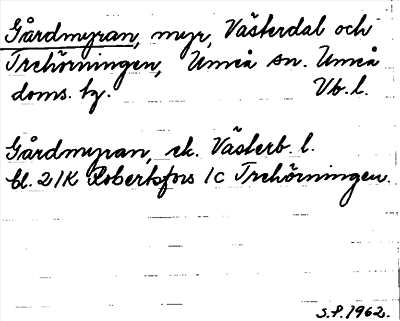 Gårdmyran, myr, Västerdal och
Trehörningen, Umeå sn. Umeå
doms. hg. Vb. l.
Gårdmyran, ek. Västerb. l.
bl. 21K Robertsfors 1c Trehörningen.
S.P. 1962.